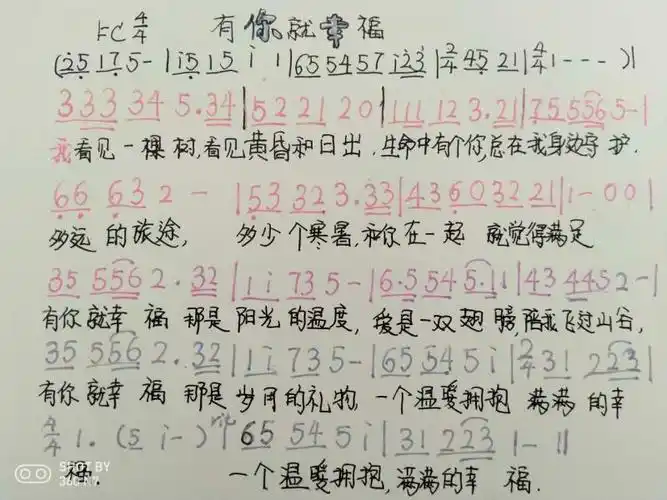 1=C 4/4 有你就幸福
(25 175-|i5 15 i 1|65 54 57 i23|2/4 45 21|4/4 1---)|
3 333 34 5.34|52 21 20|111 12 3.21|75 5565-|
我看见一棵树,看见黄昏和日出.生命中有个你,总在我身边守护.
66 63 2 -|53 32 3.33|43 60 32 21|1-00|
多远的旅途,多少个寒暑,和你在一起就觉得满足
35 5562.32|1i 735-|6.5 54 5.11|43 4452-|
有你就幸福那是阳光的温度,爱是一双翅膀,陪我飞过山谷,
35 5562.32|1i 735-|65 54 5i|2/4 31 223|
有你就幸福那是岁月的礼物一个温暖拥抱满满的幸
4/4 1.(5 i-)|65 54 5i|31 223|1-||
福.一个温暖拥抱,满满的幸福.
SHOT BY